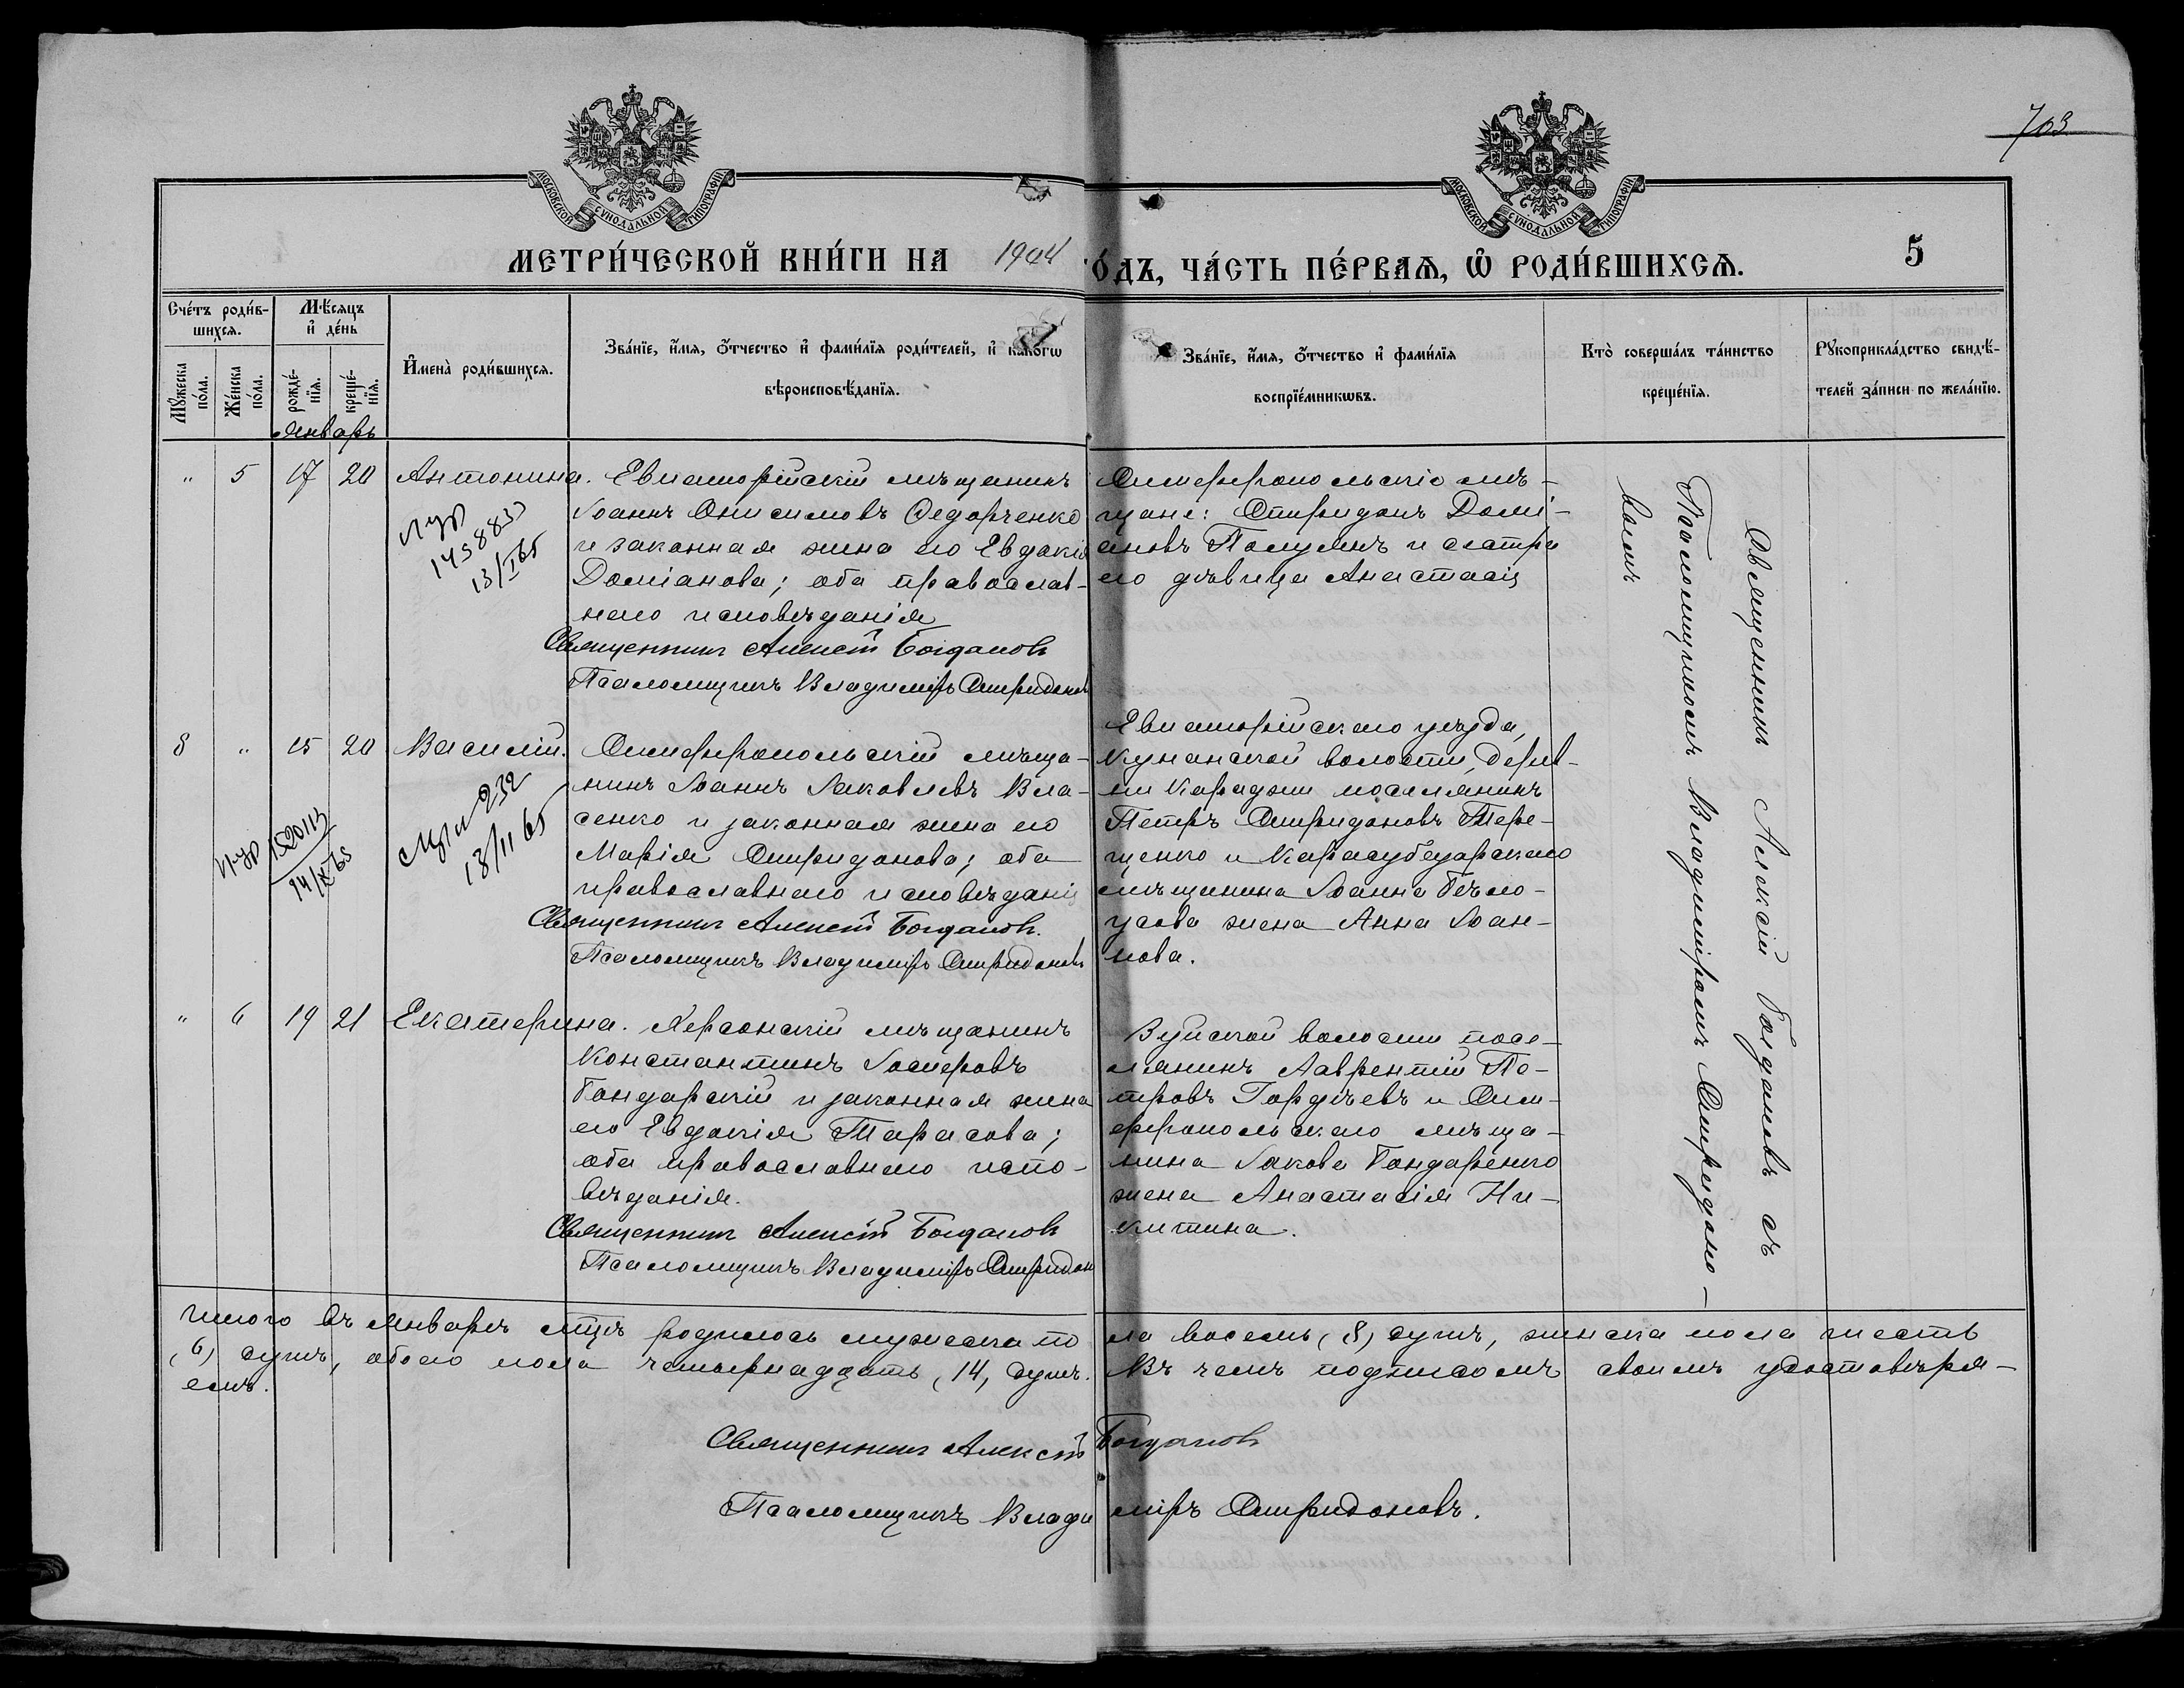 703
МОСКОВСКОЙ СУНОДАЛЬНОЙ ТИПОГРАФІИ
МОСКОВСКОЙ СУНОДАЛЬНОЙ ТИПОГРАФІИ
МЕТРИ́ЧЕСКОЙ КНИ́ГИ НА 1904
О́ДЪ, ЧА́СТЬ ПЕ́РВАѦ, Ѡ РОДИ́ВШИХСѦ.
5
Сче́тъ роди́в-
шихсѧ.
Мꙋ́жеска по́ла.
Же́нска по́ла.
Мѣ́сѧцъ
и҆ де́нь
рожде́-
нїѧ.
креще́-
нїѧ.
И҆мена̀ роди́вшихсѧ.
Зва́нїе, и҆́мѧ, ѻ҆́тчество и҆ фами́лїѧ роди́телей, и҆ како́гѡ
вѣроисповѣ́данїѧ.
Зва́нїе, и҆́мѧ, ѻ҆́тчество и҆ фами́лїѧ
воспрїе́мникѡвъ.
Кто̀ соверша́лъ та́инство
креще́нїѧ.
Рꙋкоприкла́дство свидѣ́-
телей за́писи по жела́нїю.
Январь
" 5 17 20 Антонина.
145883
Евпаторійскій мѣщанинъ
Іоаннъ Онисимовъ Федорченко
и законная жена его Евдокія
Доміанова; оба православ-
наго исповѣданія
Священникъ Алексій Богдановъ
Псаломщикъ Владиміръ Спиридоновъ
Симферопольскіе мѣ-
щане: Спиридонъ Домі-
ановъ и сестра
его дѣвица Анастасія
8 " 15 20 Василій.
152011
14/X 65
232
18/II 65
Симферопольскій мѣща-
нинъ Іоаннъ Іаковлевъ Вла-
сенко и законная жена его
Марія Спиридонова; оба
православнаго исповѣданія
Священникъ Алексій Богдановъ.
Псаломщикъ Владиміръ Спиридоновъ
Евпаторійскаго уѣзда,
Кунанской волости, дерев-
ни Караджи поселянинъ
Петръ Спиридоновъ Тере-
щенко и Карасубазарскаго
мѣщанина Іоанна Бѣло-
усова жена Анна Іоан-
нова.
" 6 19 21 Екатерина.
Херсонскій мѣщанинъ
Константинъ Іосифовъ
Бондарскій и законная жена
его Евдокія Тарасова;
оба православнаго испо-
вѣданія.
Священникъ Алексій Богдановъ
Псаломщикъ Владиміръ Спиридон
волости посе-
лянинъ Лаврентій Пе-
тровъ Гордѣевъ и Сим-
феропольскаго мѣща-
нина Іакова Бондаренко
жена Анастасія Ни-
китина.
Священникъ Алексій Богдановъ съ
Псаломщикомъ Владиміромъ Спиридоно-
вомъ
Итого въ Январѣ мцѣ родилось мужеска по
ла восемь (8) душъ, женска пола шесть
(6) душъ, обоего пола четырнадцать (14) душъ.
Въ чемъ подписомъ своимъ удостовѣря-
емъ.
Священникъ Алексій Богдановъ
Псаломщикъ Владиміръ Спиридоновъ.